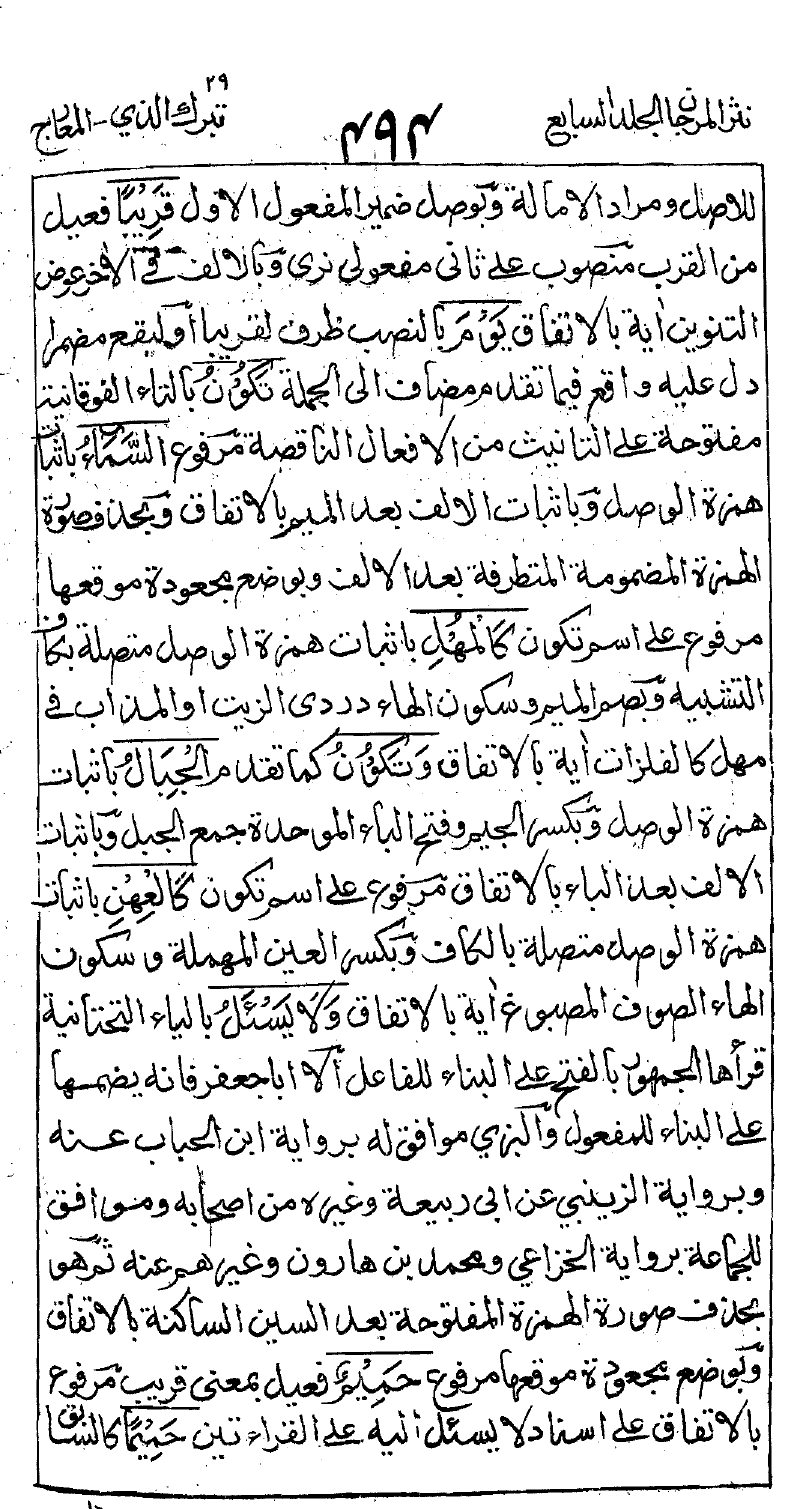 نثر المرجان الجلد السابع
٤٩٤
تبرك الذي - المعارج
٢٩
للاصل ومراد الامالة وبوصل ضمير المفعول الاول قَرِيْبًا فعيل
من القرب منصوب على ثانى مفعولى نرى وبالالف فى الاخر عوض
التنوين اية بالاتفاق يَوْمَ بالنصب ظرف لقريبا أو ليقع مضمرا
دل عليه واقع فيما تقدم مضاف الى الجملة تَكُوْنُ بالتاء الفوقانية
مفتوحة على التانيث من الافعال الناقصة مرفوع السَّمَاءُ باثبات
همزة الوصل وباثبات الالف بعد الميم بالاتفاق وبحذف صورة
الهمزة المضمومة المتطرفة بعد الالف وبوضع مجعودة موقعها
مرفوع على اسم تكون كَالْمُهْلِ باثبات همزة الوصل متصلة بكاف
التشبيه وبضم الميم وسكون الهاء دردى الزيت او المذاب فى
مهل كالفلزات اية بالاتفاق وَتَكُوْنُ كما تقدم الْجِبَالُ باثبات
همزة الوصل وبكسر الجيم وفتح الباء الموحدة جمع الجبل وباثبات
الالف بعد الباء بالاتفاق مرفوع على اسم تكون كَالْعِهْنِ باثبات
همزة الوصل متصلة بالكاف وبكسر العين المهملة وسكون
الهاء الصوف المصبوغ اية بالاتفاق وَلَا يَسْئَلُ بالياء التحتانية
قرأها الجمهور بالفتح على البناء للفاعل الا اباجعفر فانه يضمها
على البناء للمفعول والبزي موافق له برواية ابن الحباب عنه
وبرواية الزينبي عن ابى ربيعة وغيره من اصحابه وموافق
للجماعة برواية الخزاعي ومحمد بن هارون وغيرهم عنه ثم هو
بحذف صورة الهمزة المفتوحة بعد السين الساكنة بالاتفاق
وبوضع مجعودة موقعها مرفوع حَمِيْمٌ فعيل بمعنى قريب مرفوع
بالاتفاق على اسناد لا يسئل اليه على القراءتين حَمِيْمًا كالسابق